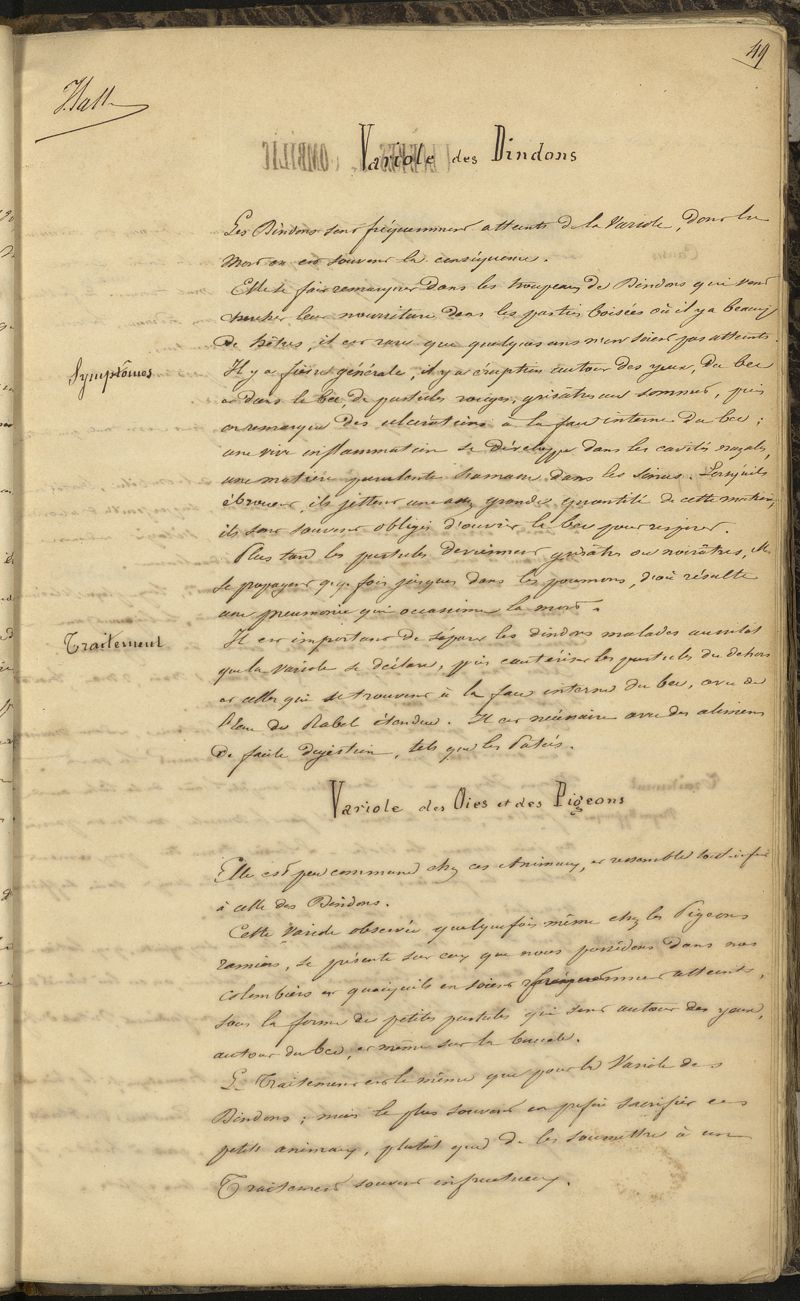 49
Hatt
Variole des Dindons
Les Dindons sont fréquemment atteints de la Variole, dont la
mort en est souvent la conséquence.
Elle se fait remarquer dans les troupeaux de Dindons qui vont
chercher leur nourriture dans les parties boisées où il y a beaucp
de hêtres, il est rare que quelques uns n'en soient pas atteints.
Symptômes
Il y a fièvre générale, il y a éruption autour des yeux, du bec
et dans le bec, de pustules rouges, grisâtres au sommet, puis
on remarque des ulcérations à la face interne du bec ;
une vive inflammation se développe dans les cavités nazales,
une matière purulente s'amasse dans les sinus. Lorsqu'ils
ébrouent, ils jettent une assez grande quantité de cette matière,
ils sont souvent obligés d'ouvrir le bec pour respirer.
Plus tard les pustules deviennent grisâtres ou noirâtres, et
se propagent qqe fois jusques dans les poumons, d'où résulte
une pneumonie qui occasionne la mort.
Traitement
Il est important de séparer les dindons malades aussitot
que la Variole se déclare, puis cautériser les pustules du dehors
et celles qui se trouvent à la face interne du bec, avec de
l'Eau de Rabel étendue. Il est nécessaire avec des alimens
de facile digestion, tels que les Patées.
Variole des Oies et des Pigeons
Elle est peu commune chez ces Animaux, et ressemble tout à fait
à celle des Dindons.
Cette Variole observée quelquefois même chez les Pigeons
ramiers, se présente sur ceux que nous possédons dans nos
colombiers et quoiqu'ils en soient fréquemment atteints,
sous la forme de petites pustules qui sont autour des yeux,
autour du bec, et même sur la
Le Traitement est le même que pour la Variole des
Dindons ; mais le plus souvent on préfère sacrifier ces
petits animaux, plutôt que de les soumettre à un
Traitement souvent infructueux.